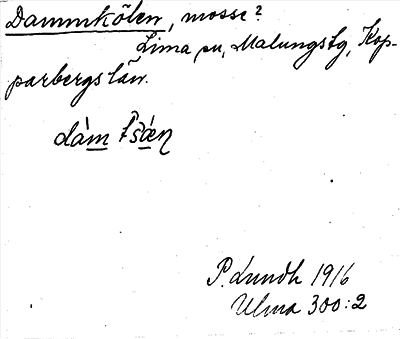 Dammkölen, mosse?
Lima sn, Malungs tg, Kop-
parbergs län.
P. Lundh 1916
Ulma 300:2